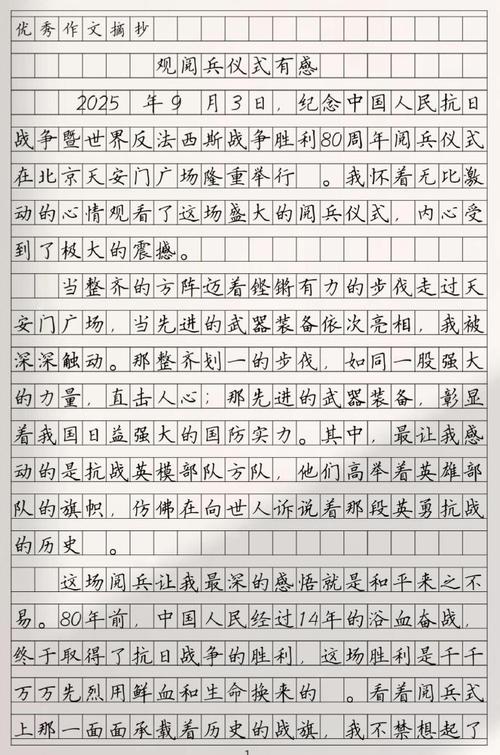 优秀作文摘抄
观阅兵仪式有感
2025 年9 月3日，纪念中国人民抗日
战争暨世界反法西斯战争胜利80周年阅兵仪式
在北京天安门广场隆重举行 。我怀着无比激
动的心情观看了这场盛大的阅兵仪式，内心受
到了极大的震撼。
当整齐的方阵迈着铿锵有力的步伐走过天
安门广场，当先进的武器装备依次亮相，我被
深深触动。那整齐划一的步伐，如同一股强大
的力量，直击人心；那先进的武器装备，彰显
着我国日益强大的国防实力。其中，最让我感
动的是抗战英模部队方队，他们高举着英雄部
队的旗帜，仿佛在向世人诉说着那段英勇抗战
的历史 。
这场阅兵让我最深的感悟就是和平来之不
易。80年前，中国人民经过14年的浴血奋战，
终于取得了抗日战争的胜利，这场胜利是千千
万万先烈用鲜血和生命换来的 。看着阅兵式
上那一面面承载着历史的战旗，我不禁想起了
1